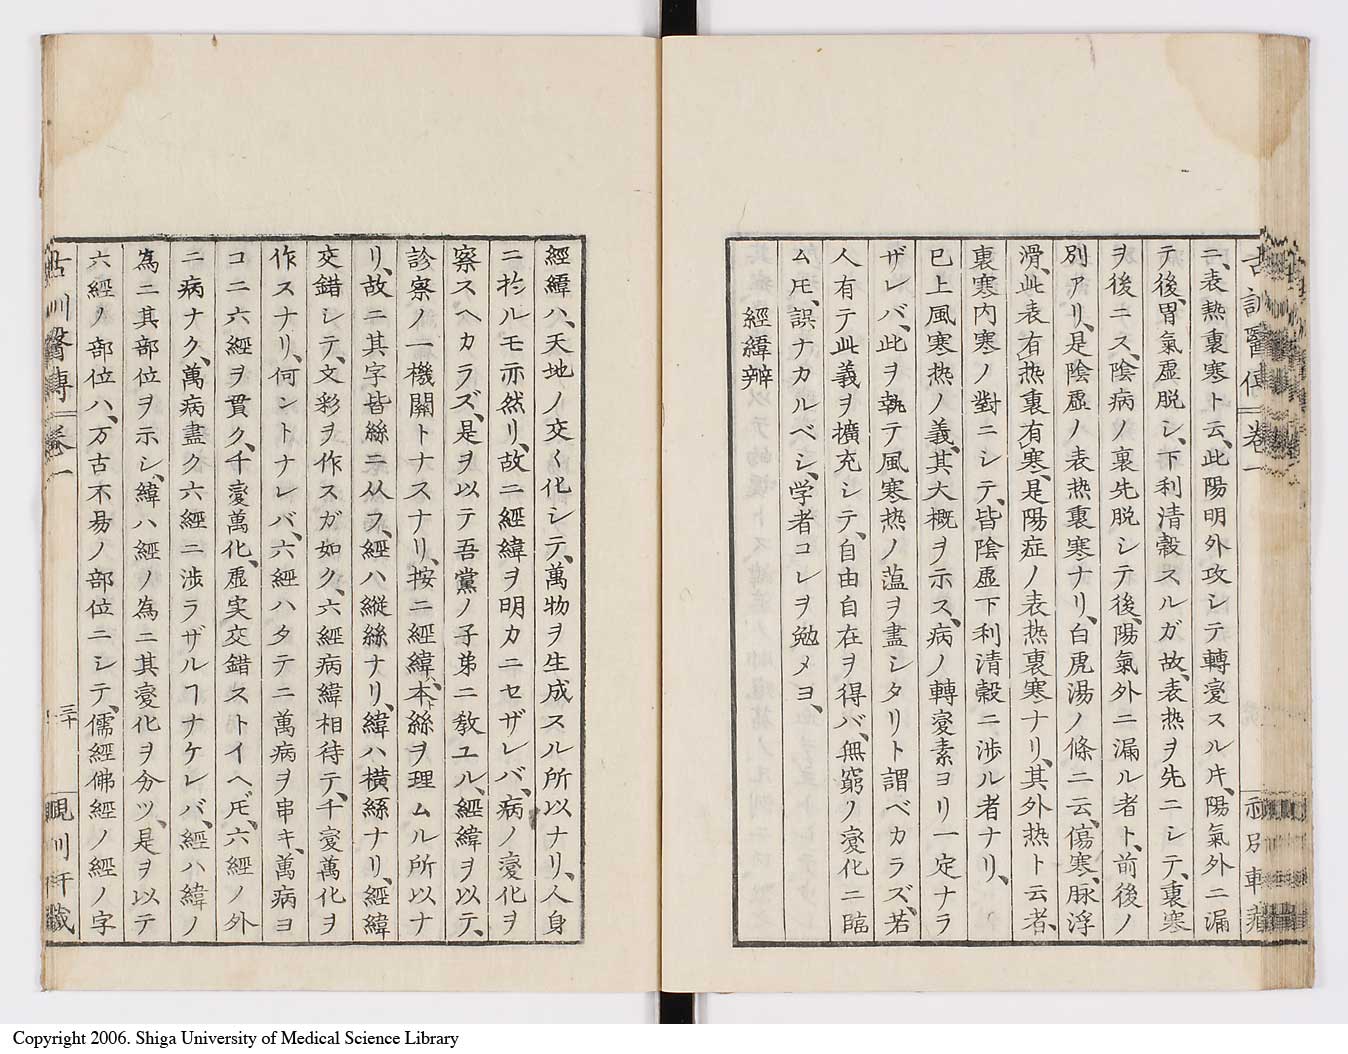 古訓醫傳 卷一
ニ、表熱裏寒ト云、此陽明外攻シテ轉変スル𪜈、陽氣外ニ漏
テ後、胃氣虚脱シ、下利清穀スルガ故、表热ヲ先ニシテ、裏寒
ヲ後ニス、陰病ノ裏先脱シテ後、陽氣外ニ漏ル者ト、前後ノ
別アリ、是陰虚ノ表热裏寒ナリ、白虎湯ノ條ニ云、傷寒、脉浮
滑、此表有热裏有寒、是陽症ノ表热裏寒ナリ、其外热ト云者、
裏寒内寒ノ對ニシテ、皆陰虚下利清穀ニ渉ル者ナリ、
已上風寒热ノ義、其大概ヲ示ス、病ノ轉変素ヨリ一定ナラ
ザレバ、此ヲ執テ風寒热ノ薀ヲ盡シタリト謂ベカラズ、若
人有テ此義ヲ擴充シテ、自由自在ヲ得バ、無窮ノ変化ニ臨
ム𪜈、誤ナカルベシ、学者コレヲ勉メヨ、
經緯辨
經緯ハ、天地ノ交〱化シテ、萬物ヲ生成スル所以ナリ、人身
ニ於ルモ亦然リ、故ニ經緯ヲ明カニセザレバ、病ノ変化ヲ
察スヘカラズ、是ヲ以テ吾黨ノ子弟ニ教ユル、經緯ヲ以テ、
診察ノ一機關トナスナリ、按ニ經緯ハ、本ト絲ヲ理ムル所以ナ
リ、故ニ其字皆絲ニ从フ、經ハ縦絲ナリ、緯ハ横絲ナリ、經緯
交錯シテ、文彩ヲ作スガ如ク、六經病緯相待テ、千変萬化ヲ
作スナリ、何ントナレバ、六經ハタテニ萬病ヲ串キ、萬病ヨ
コニ六經ヲ貫ク、千変萬化、虚実交錯ストイヘ𪜈、六經ノ外
ニ病ナク、萬病盡ク六經ニ渉ラザルヿナケレバ、經ハ緯ノ
為ニ其部位ヲ示シ、緯ハ經ノ為ニ其変化ヲ分ツ、是ヲ以テ
六經ノ部位ハ、万古不易ノ部位ニシテ、儒經佛經ノ經ノ字
古訓醫傳 卷一 三十
Copyright 2006. Shiga University of Medical Science Library